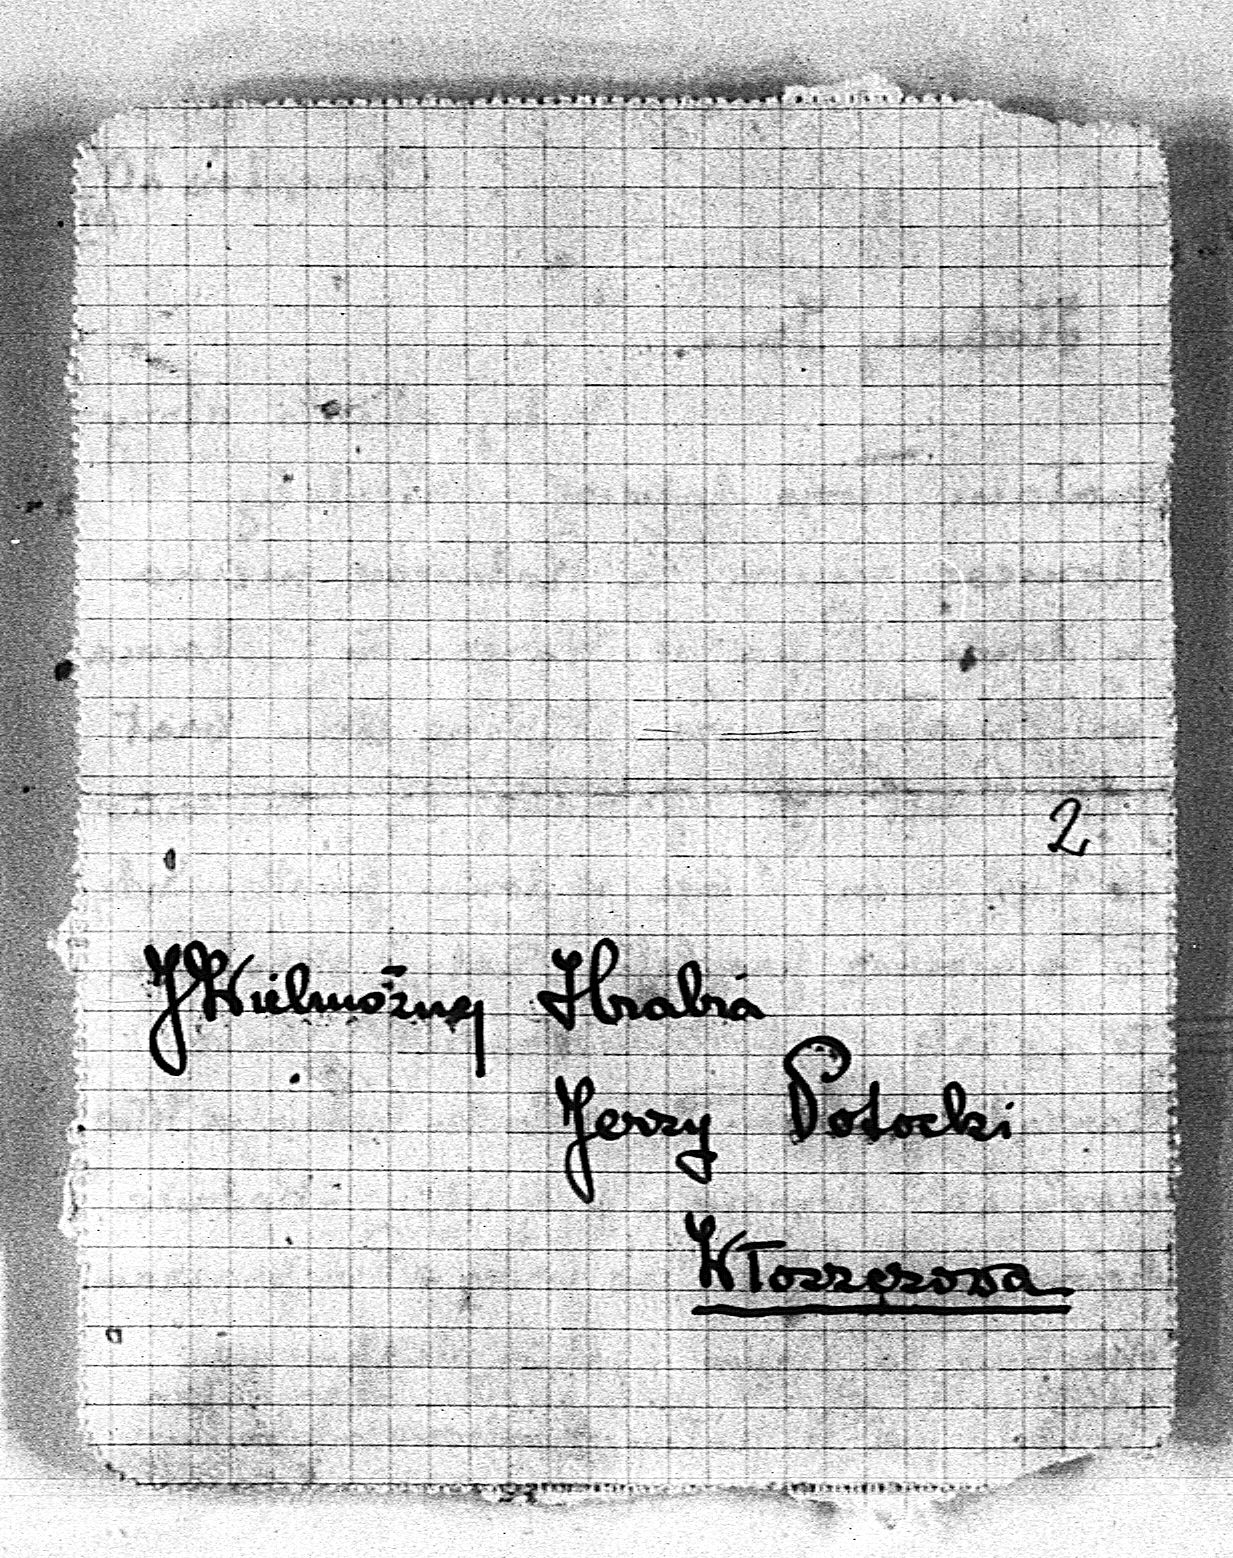 2
JWielmożny Hrabia
Jerzy Potocki
Włoszczowa